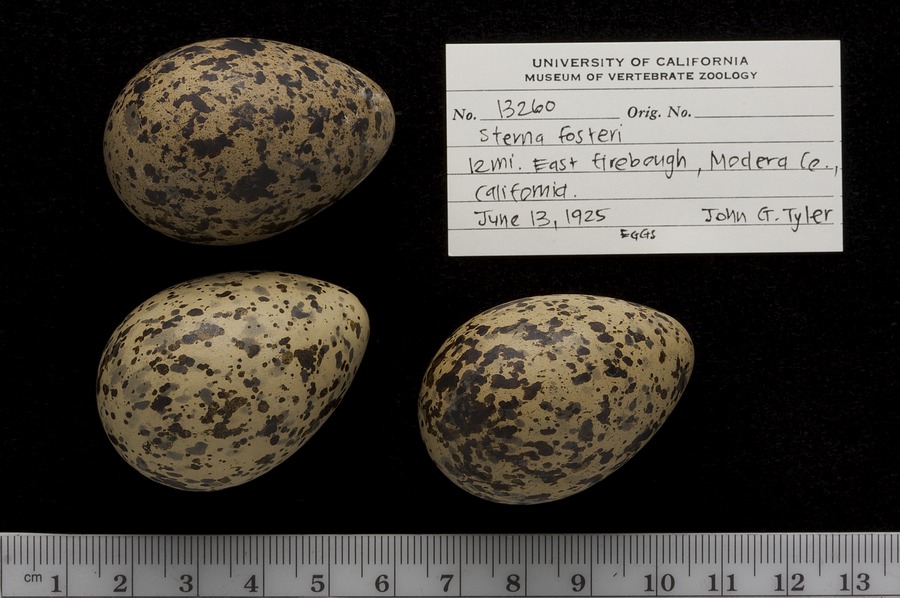 UNIVERSITY OF CALIFORNIA
MUSEUM OF VERTEBRATE ZOOLOGY
No. 13260 Orig. No.
Sterna fosteri
12mi. East firebaugh, Madera Co.,
California.
June 13, 1925 John G. Tyler
EGGS
cm 1 2 3 4 5 6 7 8 9 10 11 12 13